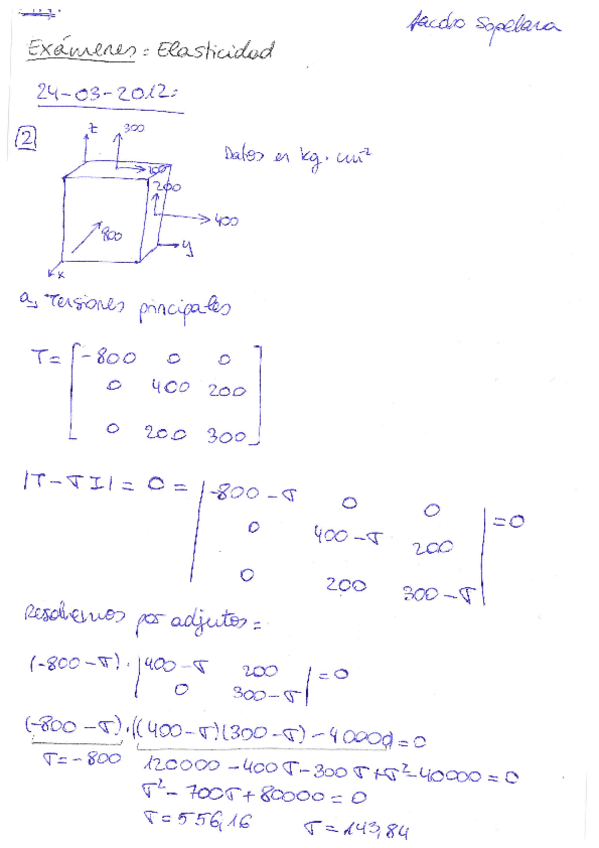 Jacobo Sapelana
Exámenes: Elasticidad
24-03-2012:
2
z 300
Datos en kg·cm²
200
200
400
800
y
x
a, Tensiones principales
T = [-800 0 0
0 400 200
0 200 300]
|T-σI| = 0 = |-800-σ 0 0
0 400-σ 200
0 200 300-σ| = 0
Resolvemos por adjuntos:
(-800-σ)·|400-σ 200
0 300-σ| = 0
(-800-σ)·((400-σ)(300-σ)-40000) = 0
σ = -800 120000-400σ-300σ+σ²-40000 = 0
σ²-700σ+80000 = 0
σ = 556,16 σ = 143,84